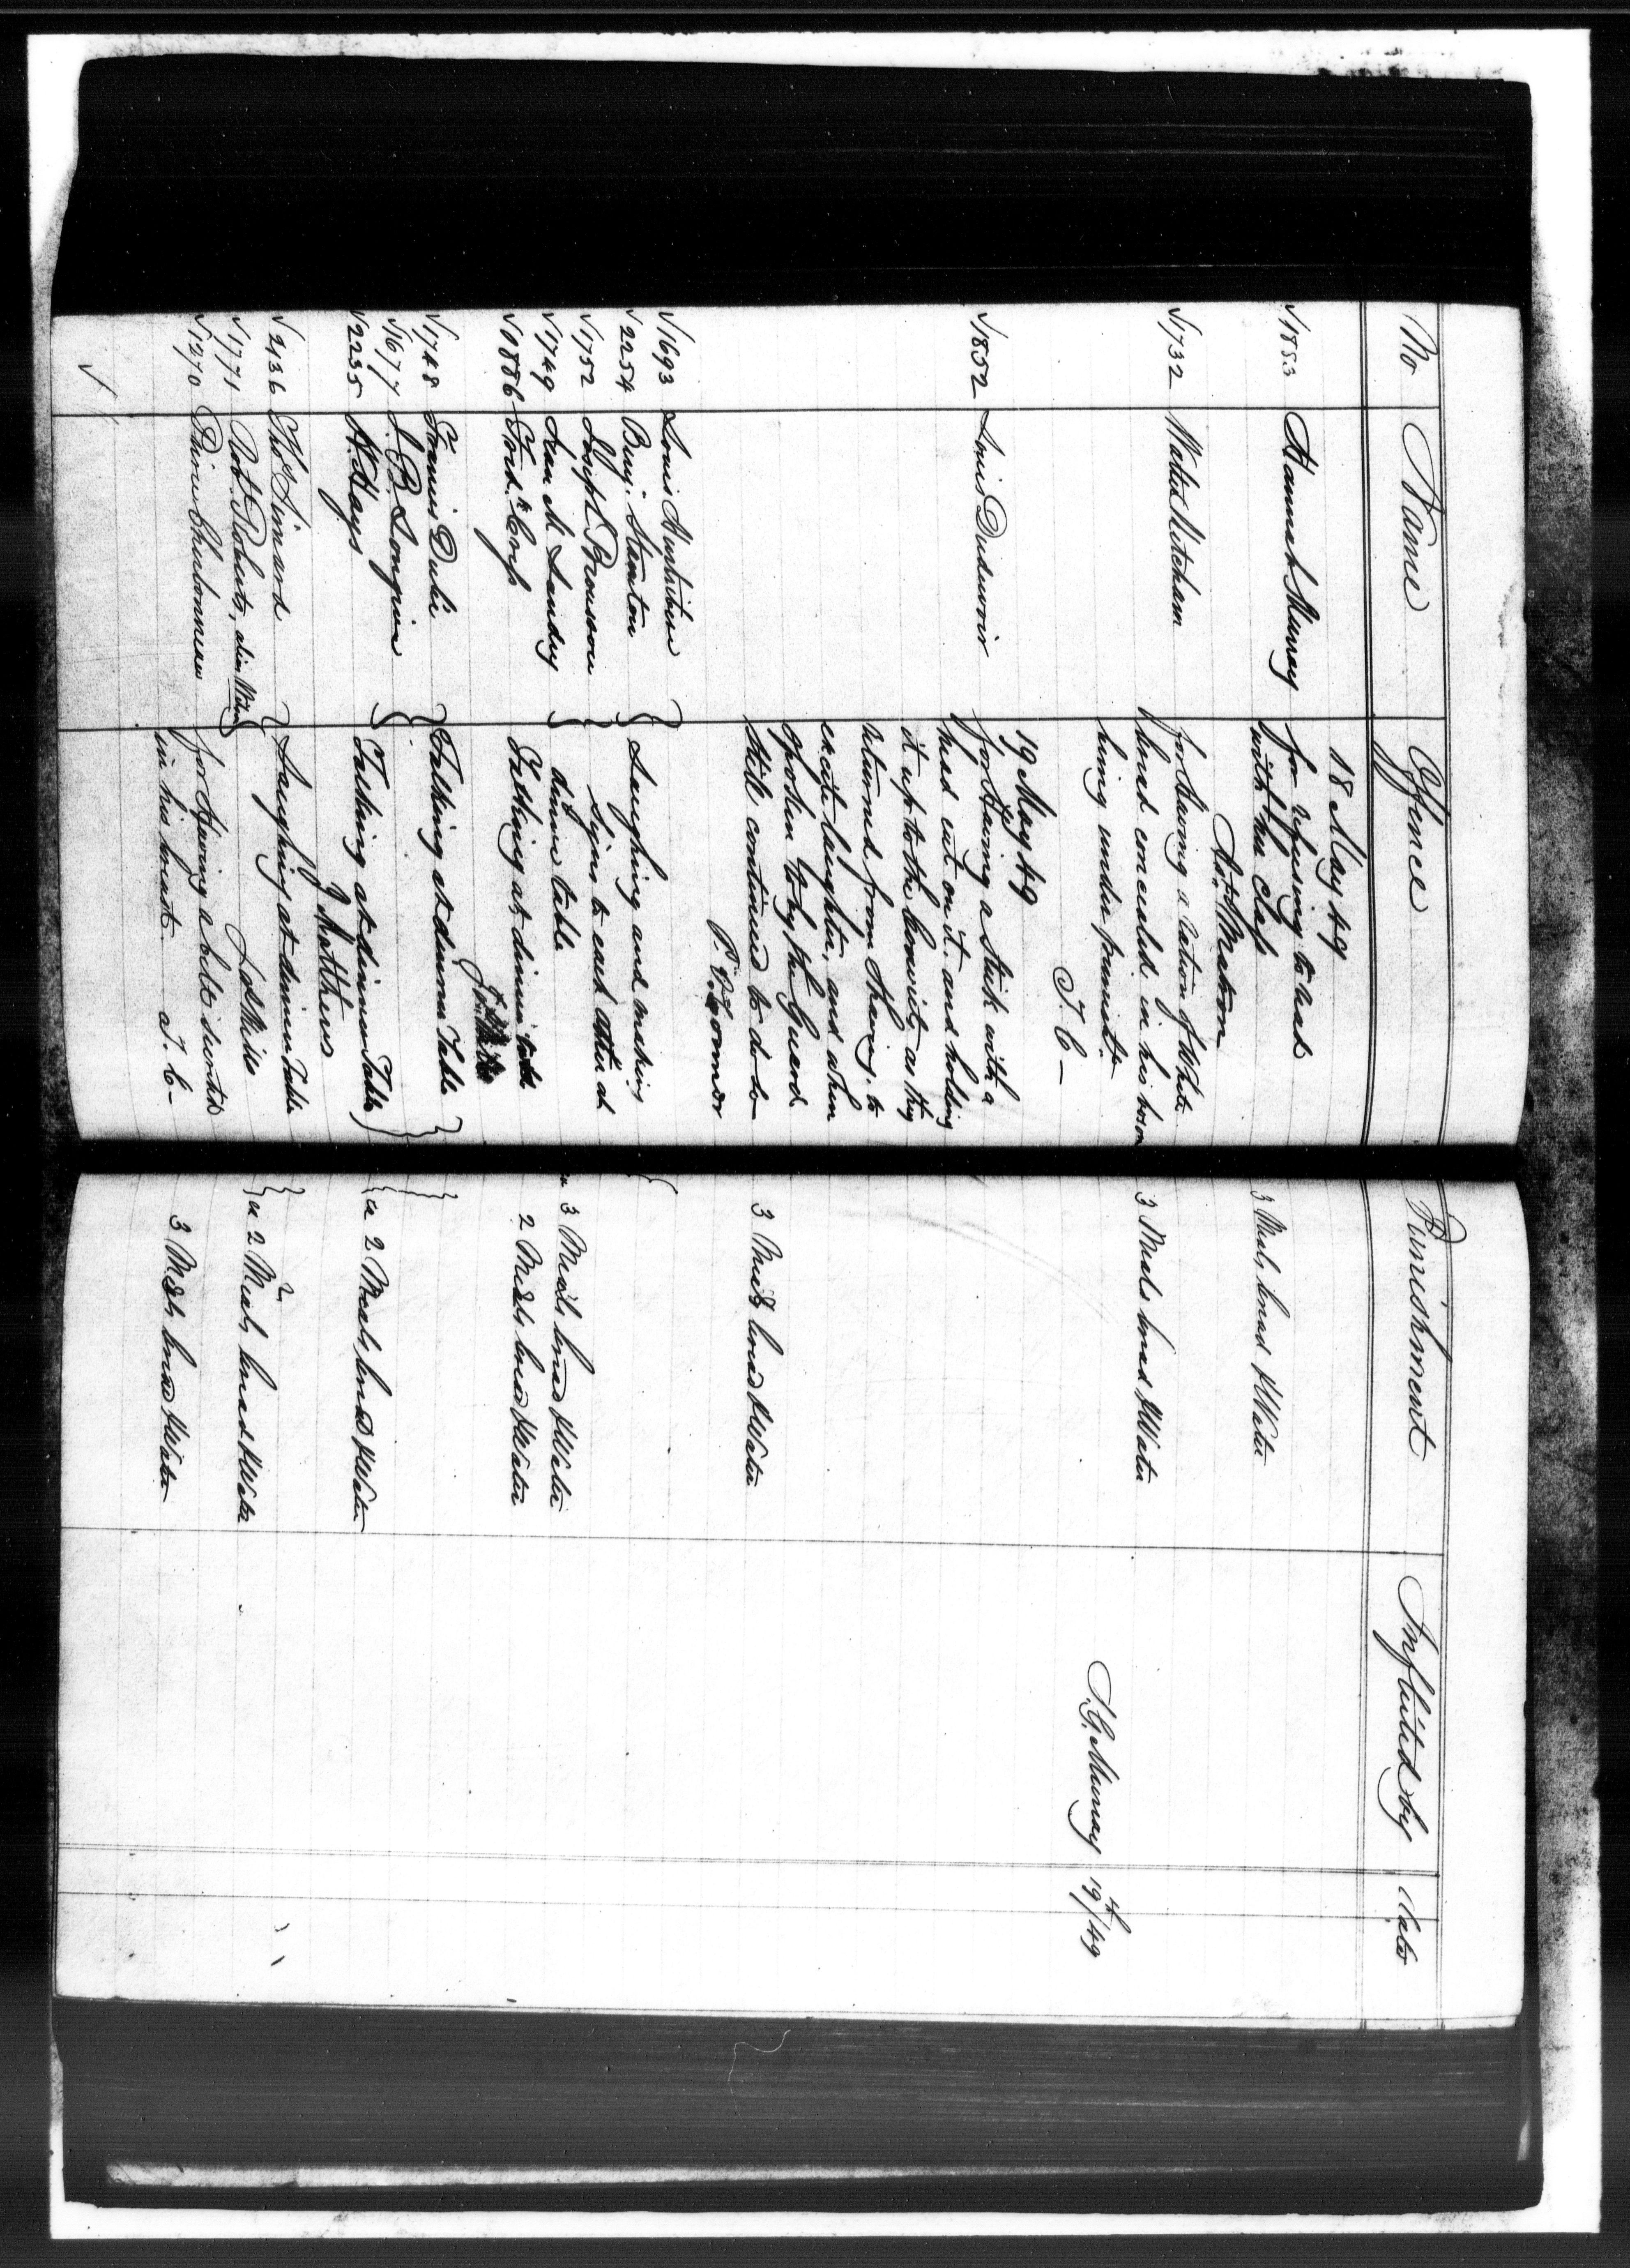 No Name Offence Punishment Inflicted by Date
18 May 49
√1883 Hannah Murray for refusing to read
with her class 3 Meals bread & Water
Ast Matron
√1732 Walter Mitcham for having a ration of White
bread concealed in his bosom 3 Meals bread & Water
being under punisht
T. C – T. G. Murray 19th/49
19 May 49
√1852 Louis Dudevoir for Having a Stick with a
head cut on it, and holding
it up to the Convicts as they
returned from Shaving, to
excite laughter, and when
spoken to by the Guard
Still continued to do so 3 Meals bread & Water
P.
√1693 Louis
√2254 Benj. Stanton Laughing and making
√1752 Joseph Brousseau signs to each other at
√1749 Jean M Landry dinner table 3 Meals bread & Water
√1886 Fredk Cross Talking at dinner table 2 Meals bread & Water
√1748 Francis Dubé Talking at dinner Table
√1677 J. B. Longpin
√2235 H. Hays Talking at dinner Table a 2 Meals bread & Water
J Matthews
√2136 Thos Simard Laughing at dinner Table
√1771 Robt Roberts, alias a 2 Meals bread & Water
√1270 Pierre Charbonneau for Having a belt secreted
in his breast. T. C – 3 Meals bread & Water
√